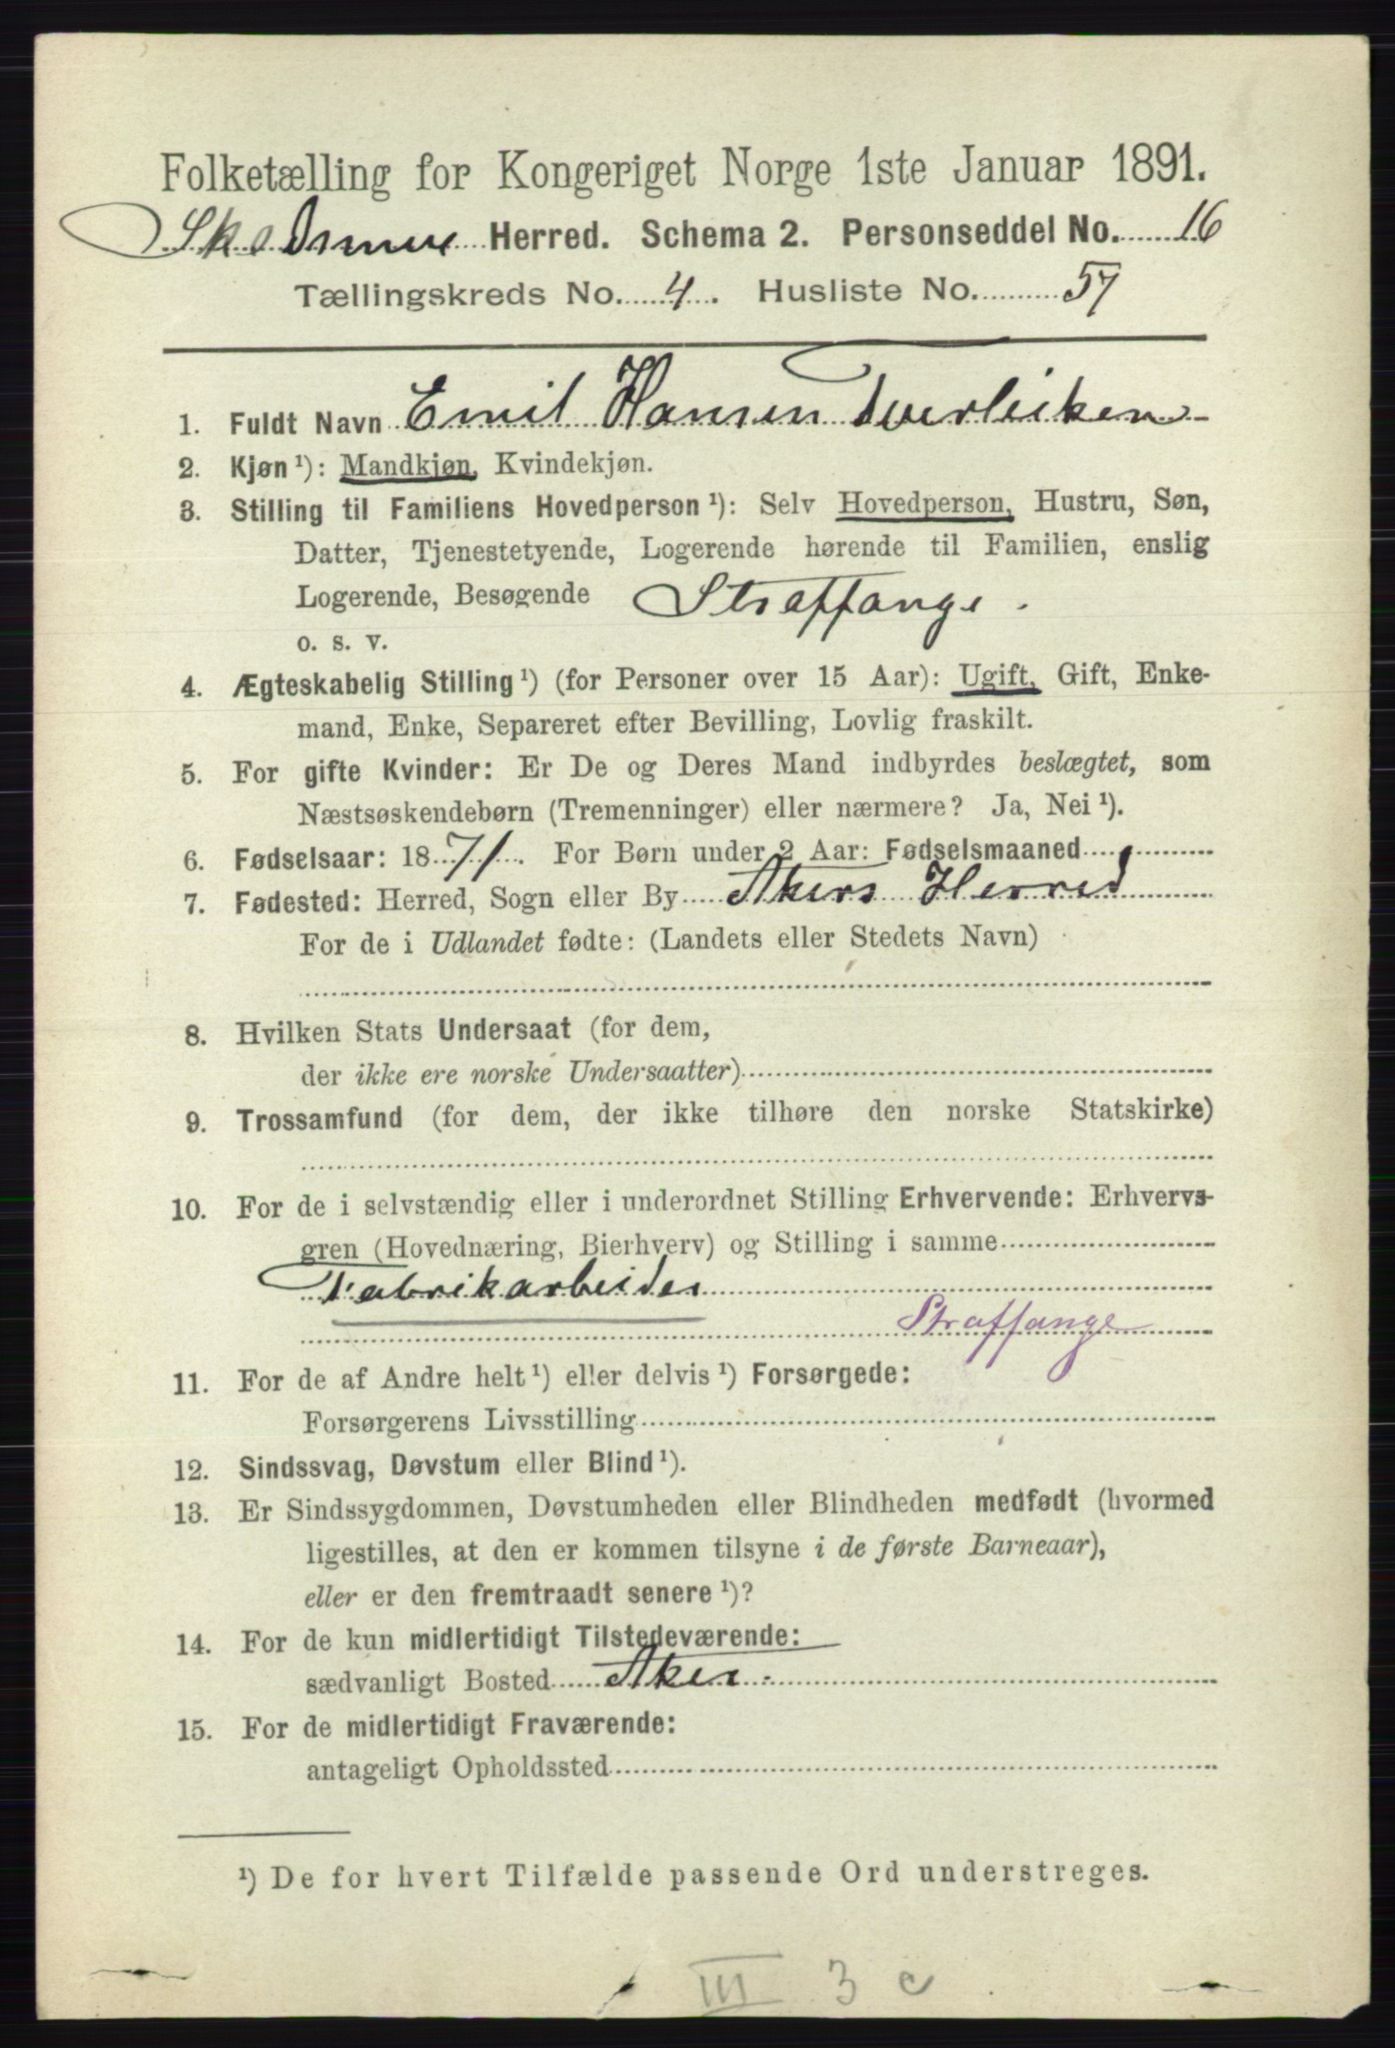 Folketælling for Kongeriget Norge 1ste Januar 1891.
Skedsmoe Herred. Schema 2. Personseddel No. 16
Tællingskreds No. 4. Husliste No. 57
1. Fuldt Navn Emil Hansen Tverleiken
2. Kjøn ¹): Mandkjøn, Kvindekjøn.
3. Stilling til Familiens Hovedperson ¹): Selv Hovedperson, Hustru, Søn,
Datter, Tjenestetyende, Logerende hørende til Familien, enslig
Logerende, Besøgende Straffange.
o. s. v.
4. Ægteskabelig Stilling ¹) (for Personer over 15 Aar): Ugift, Gift, Enke-
mand, Enke, Separeret efter Bevilling, Lovlig fraskilt.
5. For gifte Kvinder: Er De og Deres Mand indbyrdes beslægtet, som
Næstsøskendebørn (Tremenninger) eller nærmere? Ja, Nei ¹).
6. Fødselsaar: 1871. For Børn under 2 Aar: Fødselsmaaned
7. Fødested: Herred, Sogn eller By Akers Herred
For de i Udlandet fødte: (Landets eller Stedets Navn)
8. Hvilken Stats Undersaat (for dem,
der ikke ere norske Undersaatter)
9. Trossamfund (for dem, der ikke tilhøre den norske Statskirke)
10. For de i selvstændig eller i underordnet Stilling Erhvervende: Erhvervs-
gren (Hovednæring, Bierhverv) og Stilling i samme
Fabrikarbeider
Straffange
11. For de af Andre helt ¹) eller delvis ¹) Forsørgede:
Forsørgerens Livsstilling
12. Sindssvag, Døvstum eller Blind ¹).
13. Er Sindssygdommen, Døvstumheden eller Blindheden medfødt (hvormed
ligestilles, at den er kommen tilsyne i de første Barneaar),
eller er den fremtraadt senere ¹)?
14. For de kun midlertidigt Tilstedeværende:
sædvanligt Bosted Aker.
15. For de midlertidigt Fraværende:
antageligt Opholdssted
¹) De for hvert Tilfælde passende Ord understreges.
III 3 c